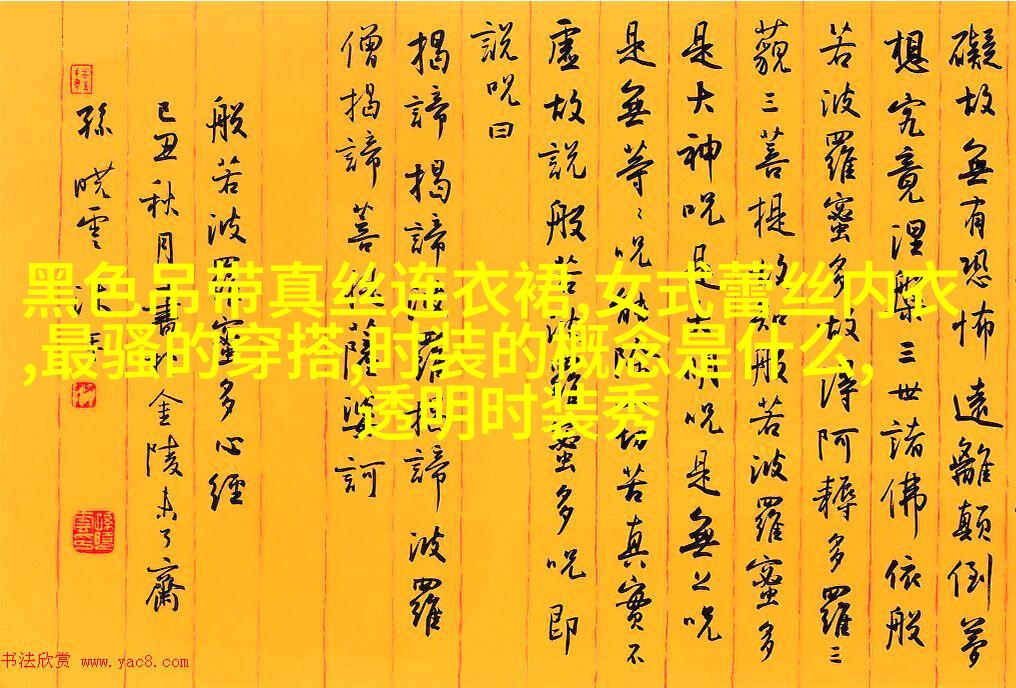 礙故無有恐怖遠離顛倒夢
想究竟涅槃三世諸佛依般
若波羅蜜多故得阿耨多羅三
藐三菩提故知般若波羅蜜多
是大神呪是大明呪是無上呪
是無等〻呪能除一切苦真實不
虛故說般若波羅蜜多呪即
說呪曰
揭諦揭諦波羅揭諦波羅
僧揭諦菩提薩婆訶
般若波羅蜜多心經
己丑秋月書於金陵未了齋
孫晓雲
黑色吊带真丝连衣裙,女式蕾丝内衣
,最骚的穿搭,时装的概念是什么,
透明时装秀
书法欣赏 www.yac8.com